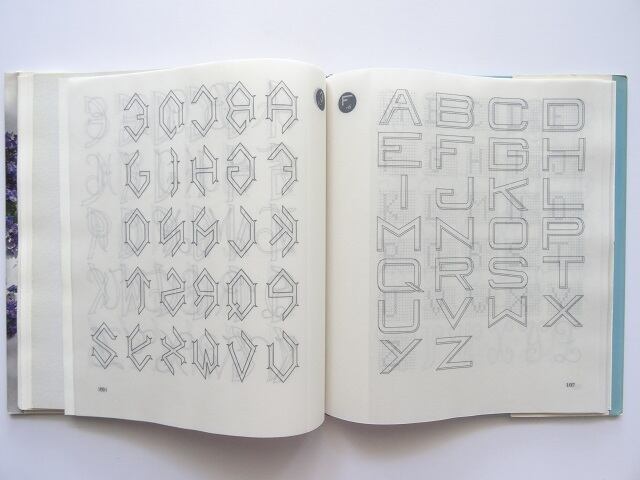 A B C D E
F G H I J
K L M N O
P Q R S T
U V W X Y Z
F
A B C D
E F G H
I J K L
M N O P
Q R S T
U V W X
Y Z